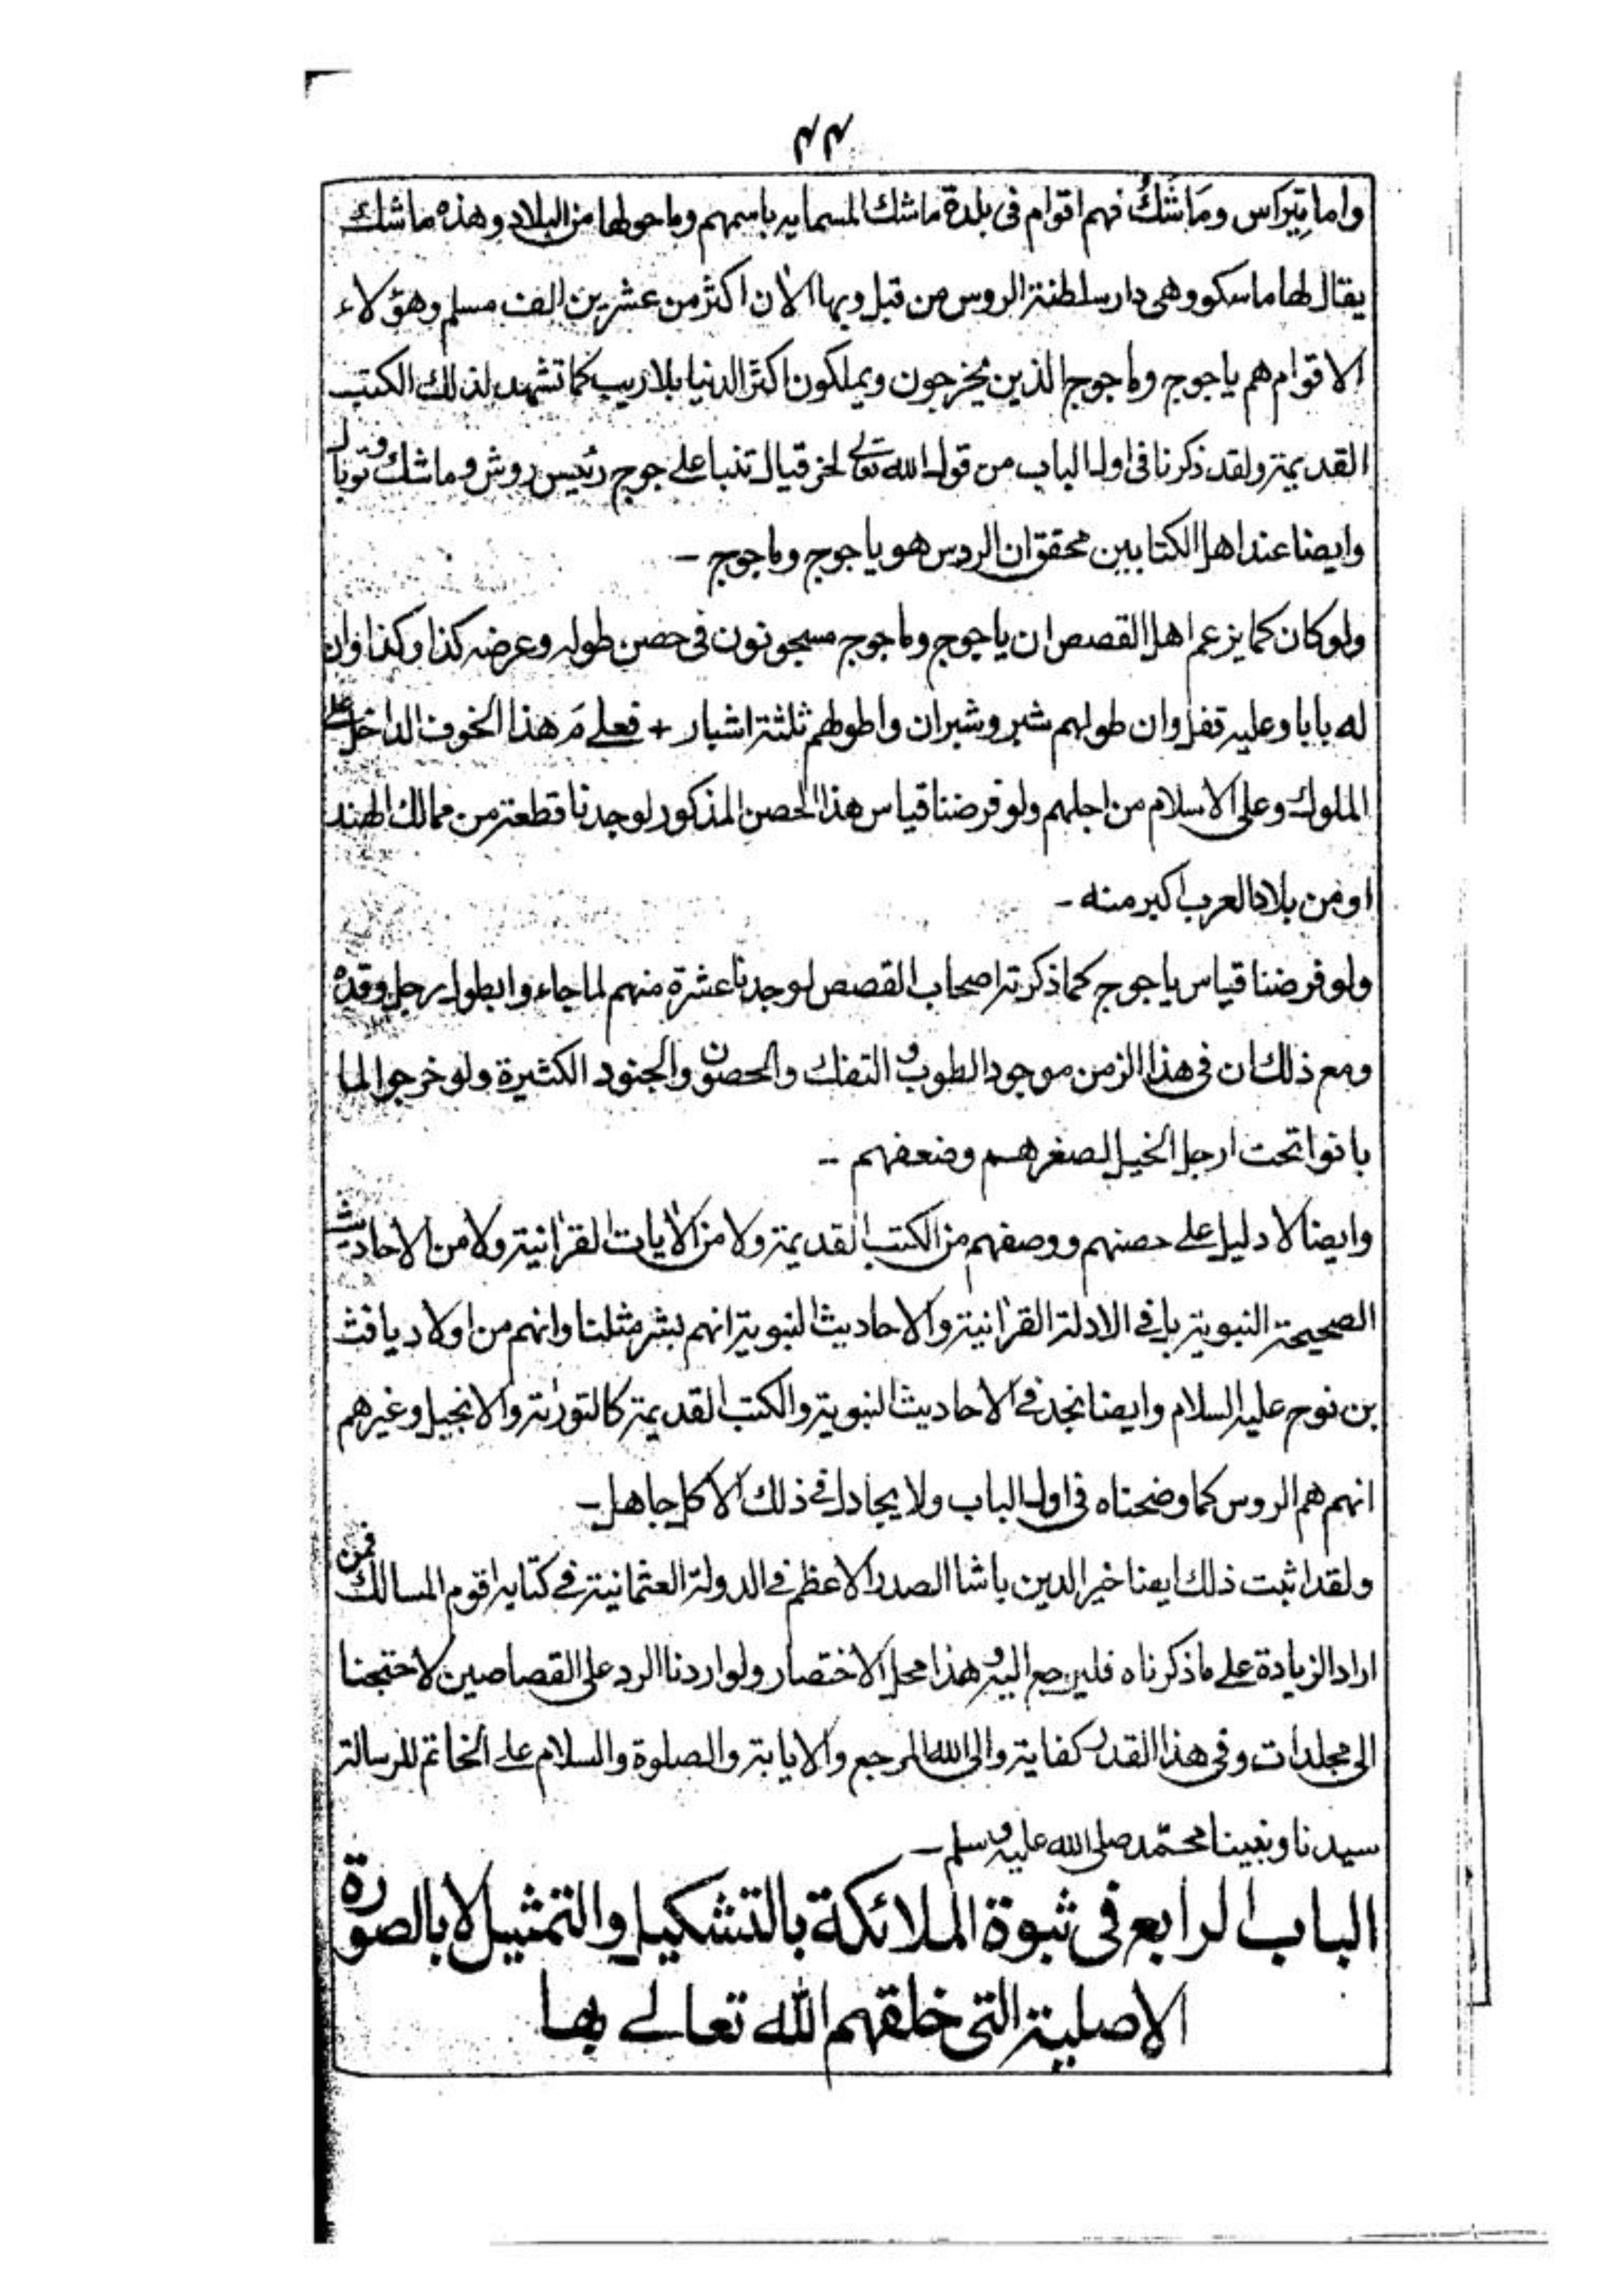 ٤٤
واما تِيَراس ومَاشَكُ فهم اقوام فى بلدة ماشك المسمايه باسمهم وما حولها من البلاد وهذه ماشك
يقال لها ماسكو وهى دار سلطنة الروس من قبل وبها الآن اكثر من عشرين الف مسلم وهؤلاء
الاقوام هم ياجوج وماجوج الذين يخرجون ويملكون اكثر الدنيا بلا ريب كما تشهد لذلك الكتب
القديمة ولقد ذكرنا فى اول الباب من قول الله تعالى لحزقيال تنبا على جوج رئيس روش وماشك وتوبال
وايضا عند اهل الكتابين محقق ان الروس هو ياجوج وماجوج -
ولو كان كما يزعم اهل القصص ان ياجوج وماجوج مسجونون فى حصن طوله وعرضه كذا وكذا وان
له بابا وعليه قفل وان طولهم شبر وشبران واطولهم ثلثة اشبار + فعلى مَ هذا الخوف الداخل على
الملوك وعلى الاسلام من اجلهم ولو فرضنا قياس هذا الحصن المذكور لوجدنا قطعة من ممالك الهند
او من بلاد العرب اكبر منه -
ولو فرضنا قياس ياجوج كما ذكرته اصحاب القصص لوجدنا عشرة منهم لما جاءوا بطول رجل وقده
ومع ذلك ان فى هذا الزمن موجود الطوب و التفك والحصون والجنود الكثيرة ولو خرجوا لما
بانوا تحت ارجل الخيل لصغرهم وضعفهم --
وايضا لا دليل على حصنهم ووصفهم من الكتب القديمة ولا من الآيات القرآنية ولا من الاحاديث
الصحيحة النبوية بل فى الادلة القرآنية والاحاديث النبوية انهم بشر مثلنا وانهم من اولاد يافث
بن نوح عليه السلام وايضا نجد فى الاحاديث النبوية والكتب القديمة كالتورٰىة والانجيل وغيرهم
انهم هم الروس كما وضحناه فى اول الباب ولا يجادل فى ذلك الا كل جاهل -
ولقد اثبت ذلك ايضا خير الدين باشا الصدر الاعظم فى الدولة العثمانية فى كتابه اقوم المسالك فمن
اراد الزيادة على ما ذكرناه فليرجع اليه و هذا محل الاختصار ولو اردنا الرد على القصاصين لاحتجنا
الى مجلدات وفى هذا القدر كفاية والى الله المرجع والايابة والصلوة والسلام على الخاتم للرسالة
سيدنا ونبينا محمّد صلى الله عليه وسلم -
الباب الرابع فى ثبوة الملائكة بالتشكيل والتمثيل لا بالصورة
الاصلية التى خلقهم الله تعالى بها